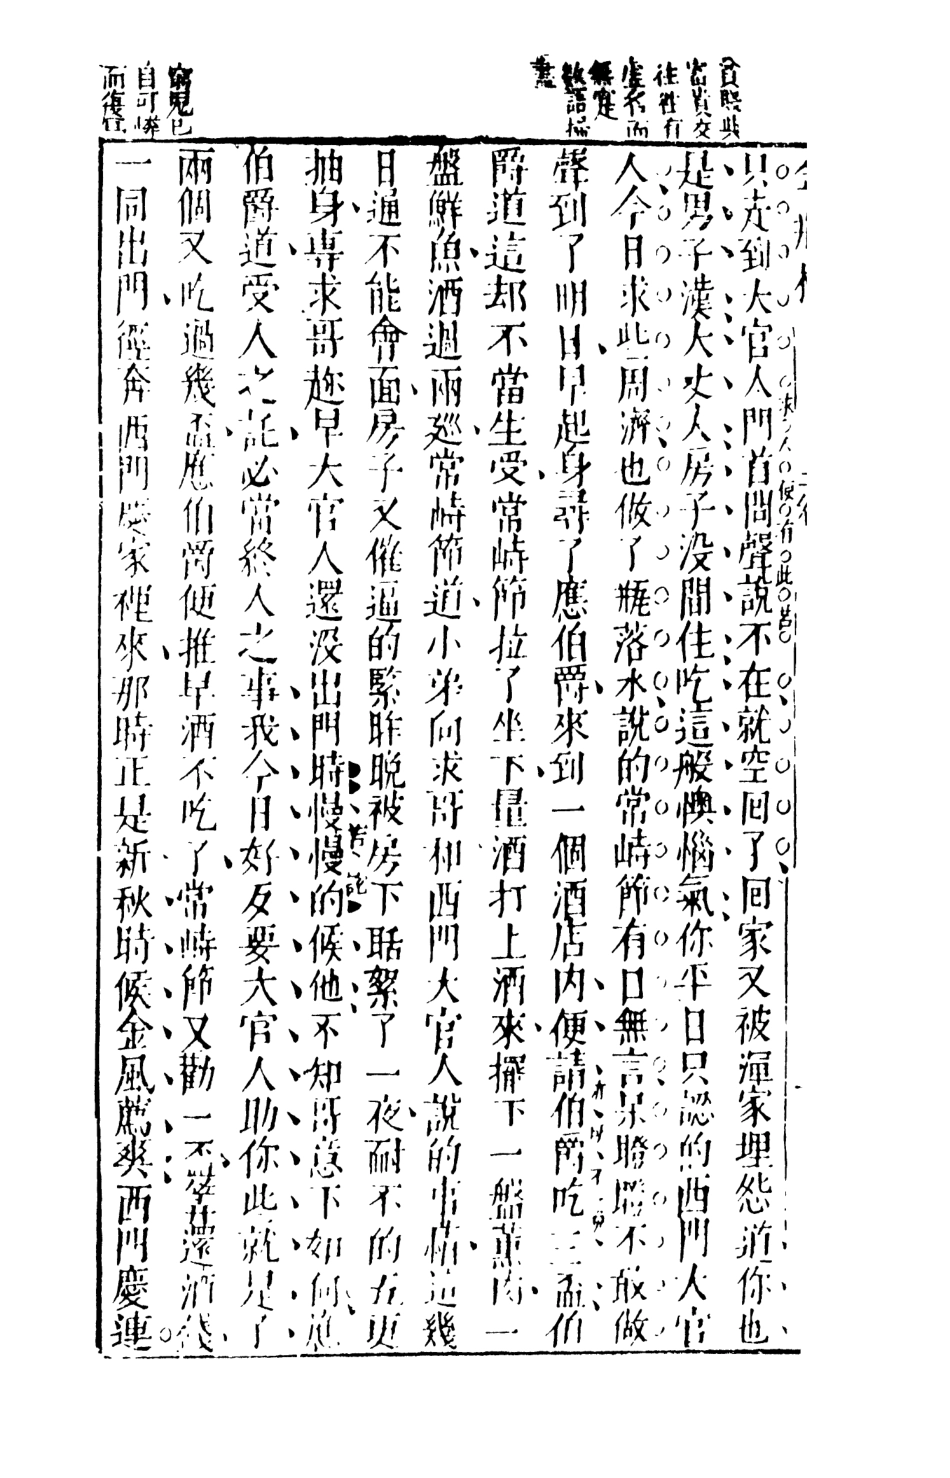 貧賤與
富貴交
往往有
虛名而
無寔
數語描
盡
窮鬼已
自可憐
而復
只走到大官人門首問聲說不在就空回了回家又被渾家埋怨道你也
是男子漢大丈夫房子沒間住吃這般懊惱氣你平日只認的西門大官
人今日求些周濟也做了瓶落水說的常峙節有口無言呆瞪瞪不敢做
聲到了明日早起身尋了應伯爵來到一個酒店內便請伯爵吃三盃伯
爵道這却不當生受常峙節拉了坐下量酒打上酒來擺下一盤薰肉一
盤鮮魚酒過兩廵常峙節道小弟向求哥和西門大官人說的事情這幾
日通不能會面房子又催逼的緊昨晚被房下聒絮了一夜耐不的五更
抽身專求哥趂早大官人還沒出門時慢慢的候他不知哥意下如何應
伯爵道受人之託必當終人之事我今日好歹要大官人助你些就是了
兩個又吃過幾盃應伯爵便推早酒不吃了常峙節又勸一盃筭還酒錢
一同出門徑奔西門慶家裡來那時正是新秋時候金風薦爽西門慶連